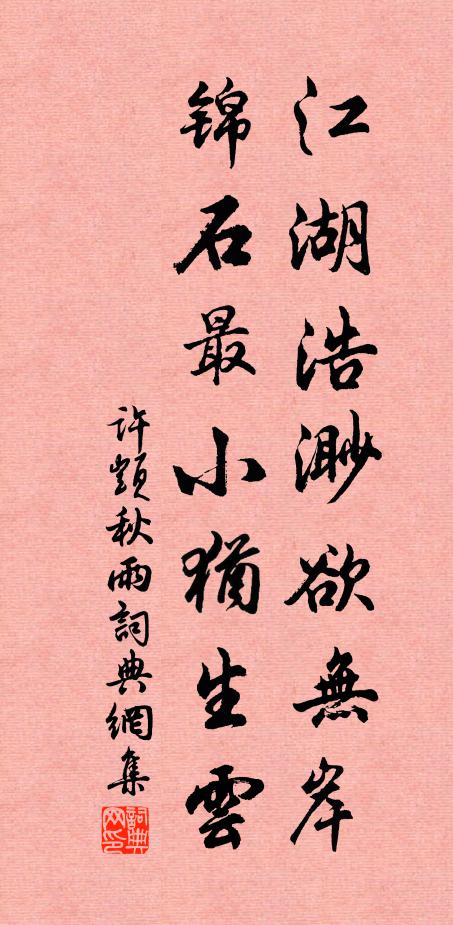 江湖浩渺欲無岸
錦石最小猶生雲
許顗秋雨詞典網集
詞典网印